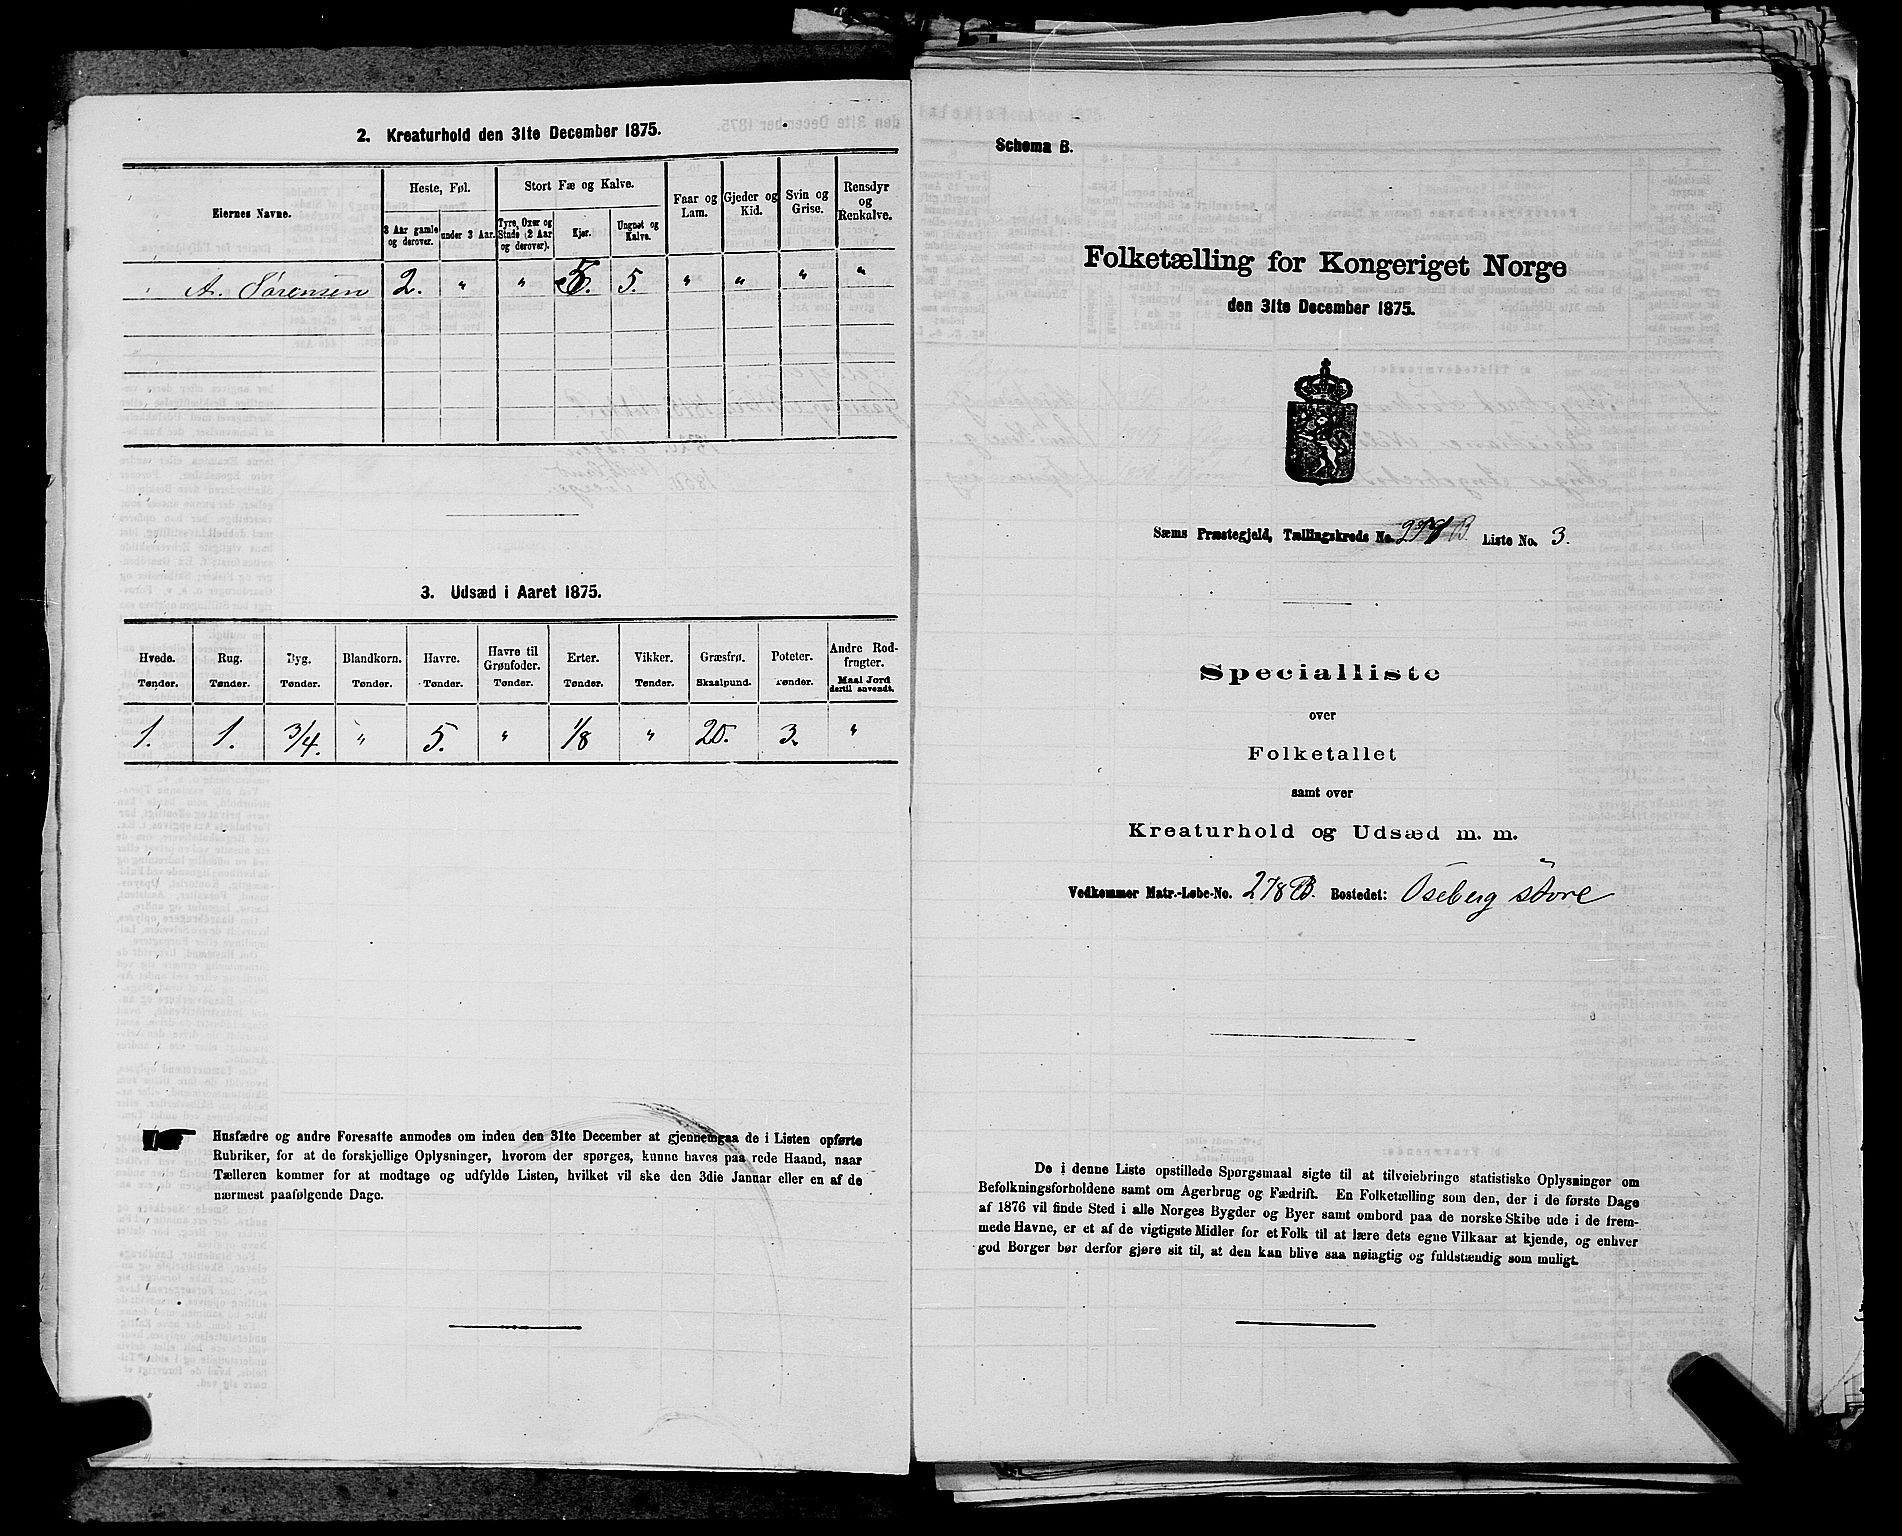 2. Kreaturhold den 31te December 1875.
Eiernes Navne.
Heste, Føl.
3 Aar gamle og derover.
under 3 Aar.
Stort Fæ og Kalve.
Tyre, Oxer og Stude (2 Aar og derover).
Kjør.
Ungnøt og Kalve.
Faar og Lam.
Gjeder og Kid.
Svin og Grise.
Rensdyr og Renkalve.
A. Sørensen 2. " " 5. 5. " " " "
3. Udsæd i Aaret 1875.
Hvede. Rug. Byg. Blandkorn. Havre. Havre til Grønfoder. Erter. Vikker. Græsfrø. Poteter. Andre Rodfrugter.
Tønder. Tønder. Tønder. Tønder. Tønder. Tønder. Tønder. Tønder. Skaalpund. Tønder. Maal Jord dertil anvendt.
1. 1. 3/4. " 5. " 1/8 " 20. 3. "
Husfædre og andre Foresatte anmodes om inden den 31te December at gjennemgaa de i Listen opførte
Rubriker, for at de forskjellige Oplysninger, hvorom der spørges, kunne haves paa rede Haand, naar
Tælleren kommer for at modtage og udfylde Listen, hvilket vil ske den 3die Januar eller en af de
nærmest paafølgende Dage.
Schema B.
Folketælling for Kongeriget Norge
den 31te December 1875.
Sæms Præstegjeld, Tællingskreds No. B. Liste No. 3.
Specialliste
over
Folketallet
samt over
Kreaturhold og Udsæd m. m.
Vedkommer Matr.-Løbe-No. 278 B. Bostedet: Oseberg støre
De i denne Liste opstillede Spørgsmaal sigte til at tilveiebringe statistiske Oplysninger om
Befolkningsforholdene samt om Agerbrug og Fædrift. En Folketælling som den, der i de første Dage
af 1876 vil finde Sted i alle Norges Bygder og Byer samt ombord paa de norske Skibe ude i de frem-
mede Havne, er et af de vigtigste Midler for et Folk til at lære dets egne Vilkaar at kjende, og enhver
god Borger bør derfor gjøre sit til, at den kan blive saa nøiagtig og fuldstændig som muligt.